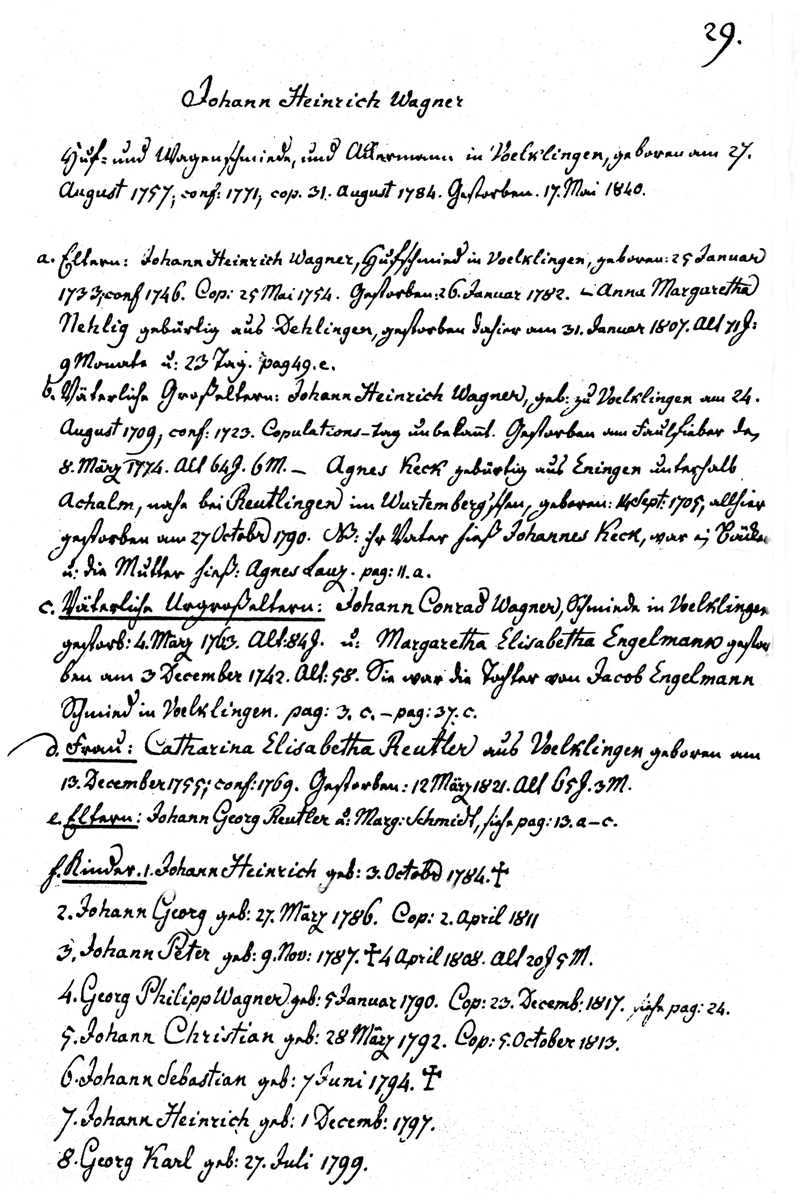 29.
Johann Heinrich Wagner
Huf= und Wagenschmiede, und Ackermann in Voelklingen, geboren am 27.
August 1757; conf: 1771; cop. 31. August 1784. Gestorben. 17. Mai 1840.
a. Eltern: Johann Heinrich Wagner, Hufschmied in Voelklingen, geboren: 25 Januar
1733; conf 1746. Cop: 25 Mai 1754. Gestorben: 26. Januar 1782. – Anna Margaretha
Nehlig gebürtig aus Dehlingen, gestorben dahier am 31. Januar 1807. Alt 71 J:
9 Monate u: 23 Tag. pag 49. e.
b. Väterliche Großeltern: Johann Heinrich Wagner, geb: zu Voelklingen am 24.
August 1709; conf: 1723. Copulations-tag unbekant. Gestorben am Faulfieber den
8. März 1774. Alt 64 J. 6 M. – Agnes Keck gebürtig aus Eningen unterhalb
Achalm, nahe bei Reutlingen im Wurtemberg'schen, geboren: 14 Sept: 1705, allhier
gestorben am 27 Octobr 1790. NB: ihr Vater hieß Johannes Keck, war ein Bäcker
u: die Mutter hieß: Agnes Lauz. pag: 11. a.
c. Väterliche Urgroßeltern: Johann Conrad Wagner, Schmiede in Voelklingen
gestorb: 4. März 1763. Alt: 84 J. u: Margaretha Elisabetha Engelmann gestor
ben am 3 December 1742. Alt: 58. Sie war die Tochter von Jacob Engelmann
Schmied in Voelklingen. pag: 3. c. – pag: 37. c.
d. Frau: Catharina Elisabetha Reutler aus Voelklingen geboren am
13. December 1755; conf: 1769. Gestorben: 12 März 1821. Alt 65 J. 3 M.
e. Eltern: Johann Georg Reutler u: Marg: Schmidt, siehe pag: 13. a–c.
f. Kinder. 1. Johann Heinrich geb: 3. Octobr 1784. ✝
2. Johann Georg geb: 27. März 1786. Cop: 2. April 1811
3. Johann Peter geb: 9. Nov: 1787. ✝ 4 April 1808. Alt 20 J 5 M.
4. Georg Philipp Wagner geb: 5 Januar 1790. Cop: 23. Decemb: 1817. siehe pag: 24.
5. Johann Christian geb: 28 März 1792. Cop: 5. October 1813.
6. Johann Sebastian geb: 7 Juni 1794. ✝
7. Johann Heinrich geb: 1 Decemb: 1797.
8. Georg Karl geb: 27. Juli 1799.